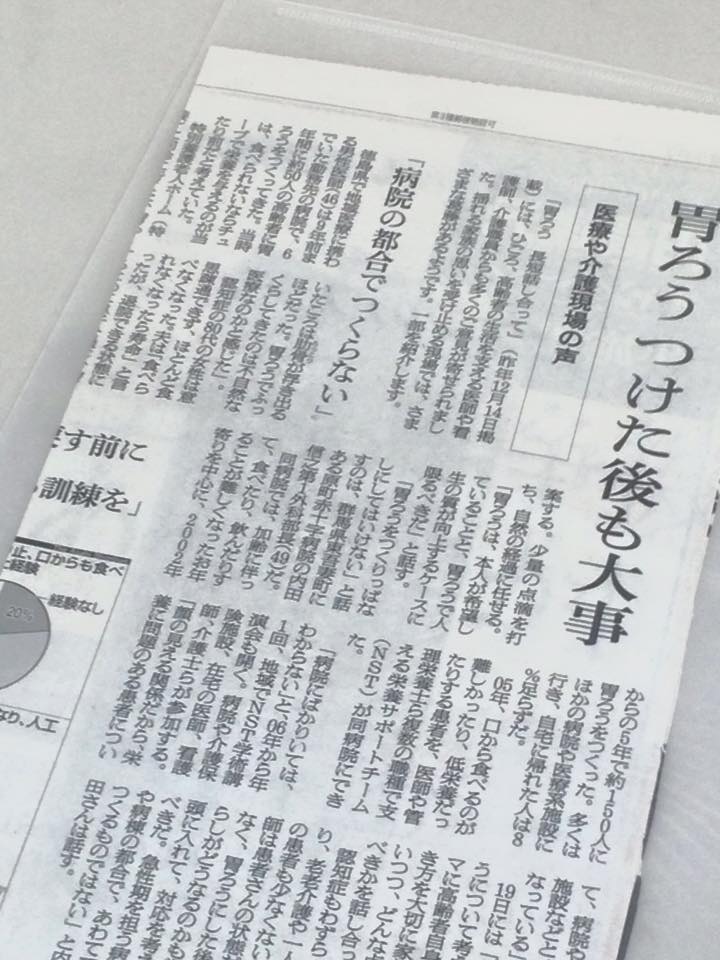 第3種郵便物認可
胃ろう つけた後も大事
医療や介護現場の声
「胃ろう 長短話し合って」（昨年12月14日掲
載）には、ひごろ、高齢者の生活を支える医師や看
護師、介護職員からも多くのご意見が寄せられまし
た。揺れる家族の思いを受け止める現場では、さま
ざまな経験があるようです。一部を紹介します。
「病院の都合でつくらない」
徳島県で地域医療に携わ
る男性医師(46)は9年前ま
でいた勤務先の病院で、6
年間に約50人の高齢者に胃
ろうをつくってきた。当時
は、食べられないならチュ
ーブで栄養を与えるのが当
たり前と考えていた。
特別養護老人ホーム（特
いたころは肋骨が浮き出る
ほどだった。胃ろうでふっ
くらしてきたのは不自然な
医療なのかと感じた」。
認知症の80代の女性は意
思疎通できず、ほとんど食
べなくなった。夫は「食べら
れなくなったら寿命」と言
ったが、退院できる状態に
案する。少量の点滴を打
ち、自然の経過に任せる。
「胃ろうは、本人が希望し
ていることと、胃ろうで人
生の質が向上するケースに
限るべきだ」と話す。
「胃ろうをつくりっぱな
しにしてはいけない」と話
すのは、群馬県東吾妻町に
ある原町赤十字病院の内田
信之第1外科部長(49)だ。
同病院では、加齢に伴っ
て、食べたり、飲んだりす
ることが難しくなったお年
寄りを中心に、2002年
からの5年で約150人に
胃ろうをつくった。多くは
ほかの病院や医療系施設に
行き、自宅に帰れた人は8
%足らずだ。
05年、口から食べるのが
難しかったり、低栄養だっ
たりする患者を、医師や管
理栄養士ら複数の職種で支
える栄養サポートチーム
(NST)が同病院にでき
た。
「病院にばかりいては、
わからない」と、06年から年
1回、地域でNST学術講
演会も開く。病院や介護保
険施設、在宅の医師、看護
師、介護士らが参加する。
「顔の見える関係だから、栄
養に問題のある患者につい
て、病院や
施設などと
なっている」
19日には「
うについて考
マに高齢者自身
き方を大切に家
いつつ、どんな
べきかを話し合っ
認知症もわずら
り、老老介護や一人
の患者も少なくない
師は患者さんの状態
なく、胃ろうにした後
らしがどうなるのかも
頭に入れて、対応を考
べきだ。急性期を担う病
や病棟の都合で、あわて
つくるものではない」と内
田さんは話す。
す前に
訓練を」
止、口からも食べ
経験
経験なし
20%
なり、人工